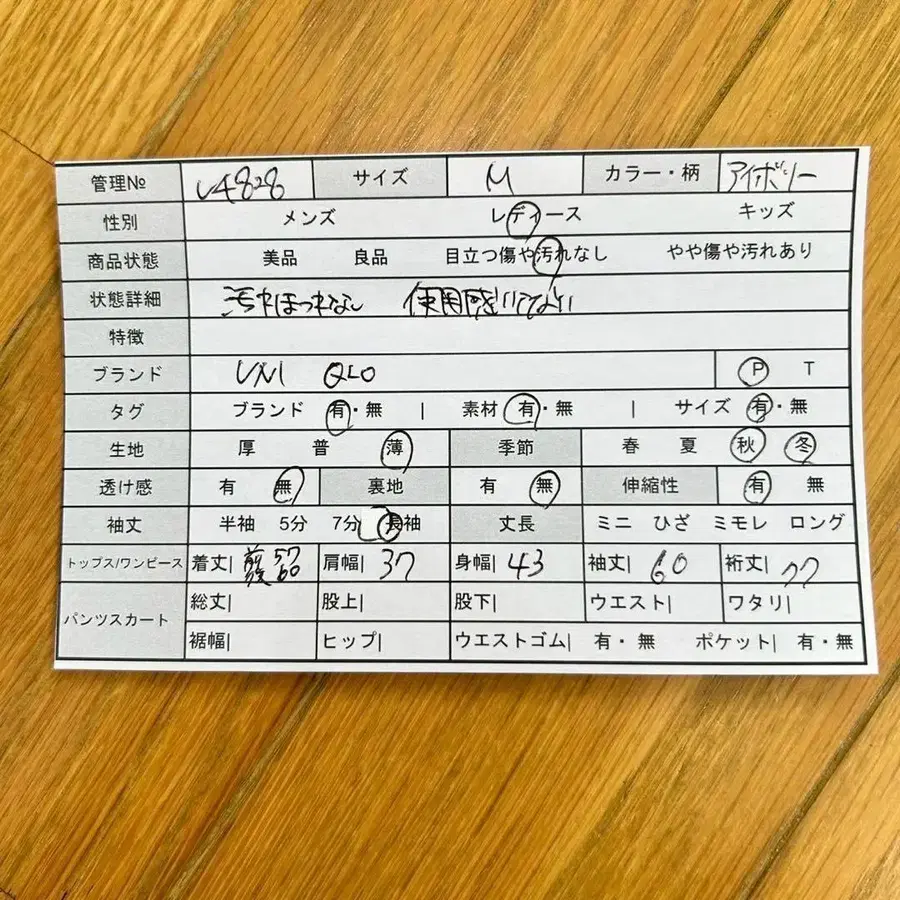 管理№ U4828 サイズ M カラー・柄 アイボリー
性別 メンズ レディース キッズ
商品状態 美品 良品 目立つ傷や汚れなし やや傷や汚れあり
状態詳細 汚れほつれなし 使用感
特徴
ブランド UNI QLO P T
タグ ブランド 有・無 | 素材 有・無 | サイズ 有・無
生地 厚 普 薄 季節 春 夏 秋 冬
透け感 有 無 裏地 有 無 伸縮性 有 無
袖丈 半袖 5分 7分 長袖 丈長 ミニ ひざ ミモレ ロング
トップス/ワンピース 着丈| 前57 後60 肩幅| 37 身幅| 43 袖丈| 60 裄丈| 77
パンツスカート 総丈| 股上| 股下| ウエスト| ワタリ|
裾幅| ヒップ| ウエストゴム| 有・無 ポケット| 有・無